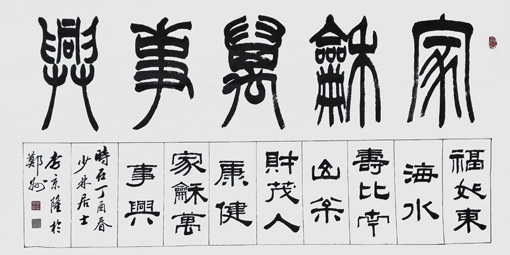 家龢萬事興
福如東
海水
壽比南
山枀
財茂人
康健
家龢萬
事興
時在丁酉春
少林居士
李京隆於
鄭州